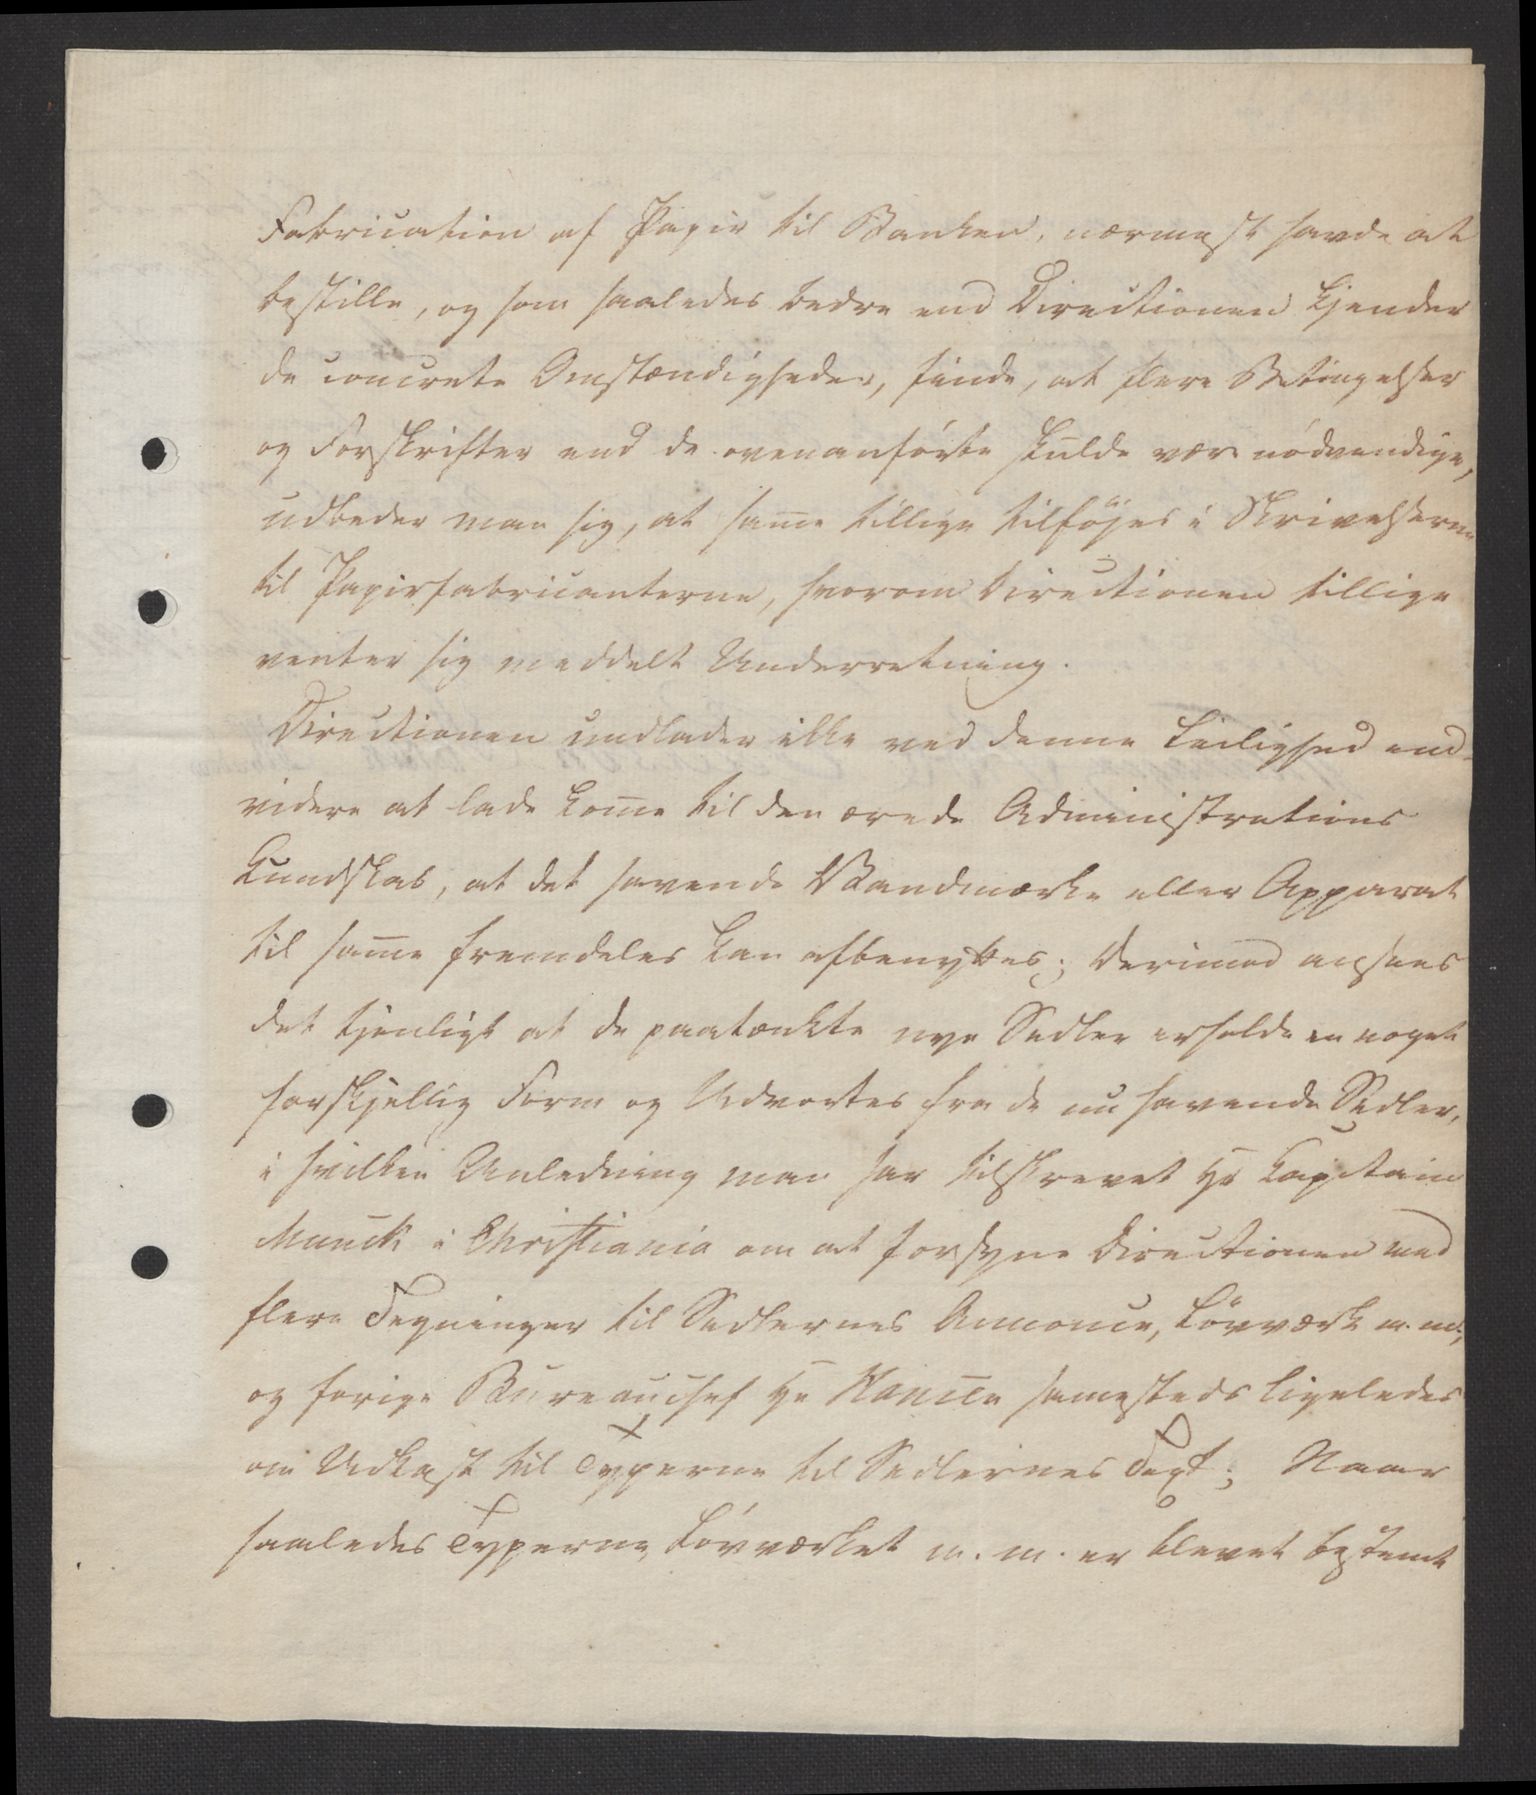 Fabrication af Papir til Banken, nærmest havde at
bestille, og som saaledes bedre end Directionen kjender
de concrete Omstændigheder, finde, at flere Betingelser
og Forskrifter end de ovenanførte skulde være nødvendige,
udbeder man sig, at sam̄e tillige tilføjes i Skrivelserne
til Papirfabricanterne, hvorom Directionen tillige
venter sig meddelt Underretning.
Directionen undlader ikke ved denne Leilighed end-
videre at lade kom̄e til den ærede Administrations
Kundskab, at det havende Vandmærke eller Apparat
til sam̄e fremdeles kan afbenyttes; derimod ansees
det tjenligt at de paatænkte nye Sedler erholde en noget
forskjellig Form og Udvortes fra de nu havende Sedler,
i hvilken Anledning man har tilskrevet Hr Capitain
Munch i Christiania om at forsyne Directionen med
flere Tegninger til Sedlernes Annonce, Løvværk m.m.,
og forige Bureauchef Hr sam̄esteds ligeledes
om Udkast til Typerne til Sedlernes Text; Naar
saaledes Typerne, Løvværket m.m. er blevet bestemt